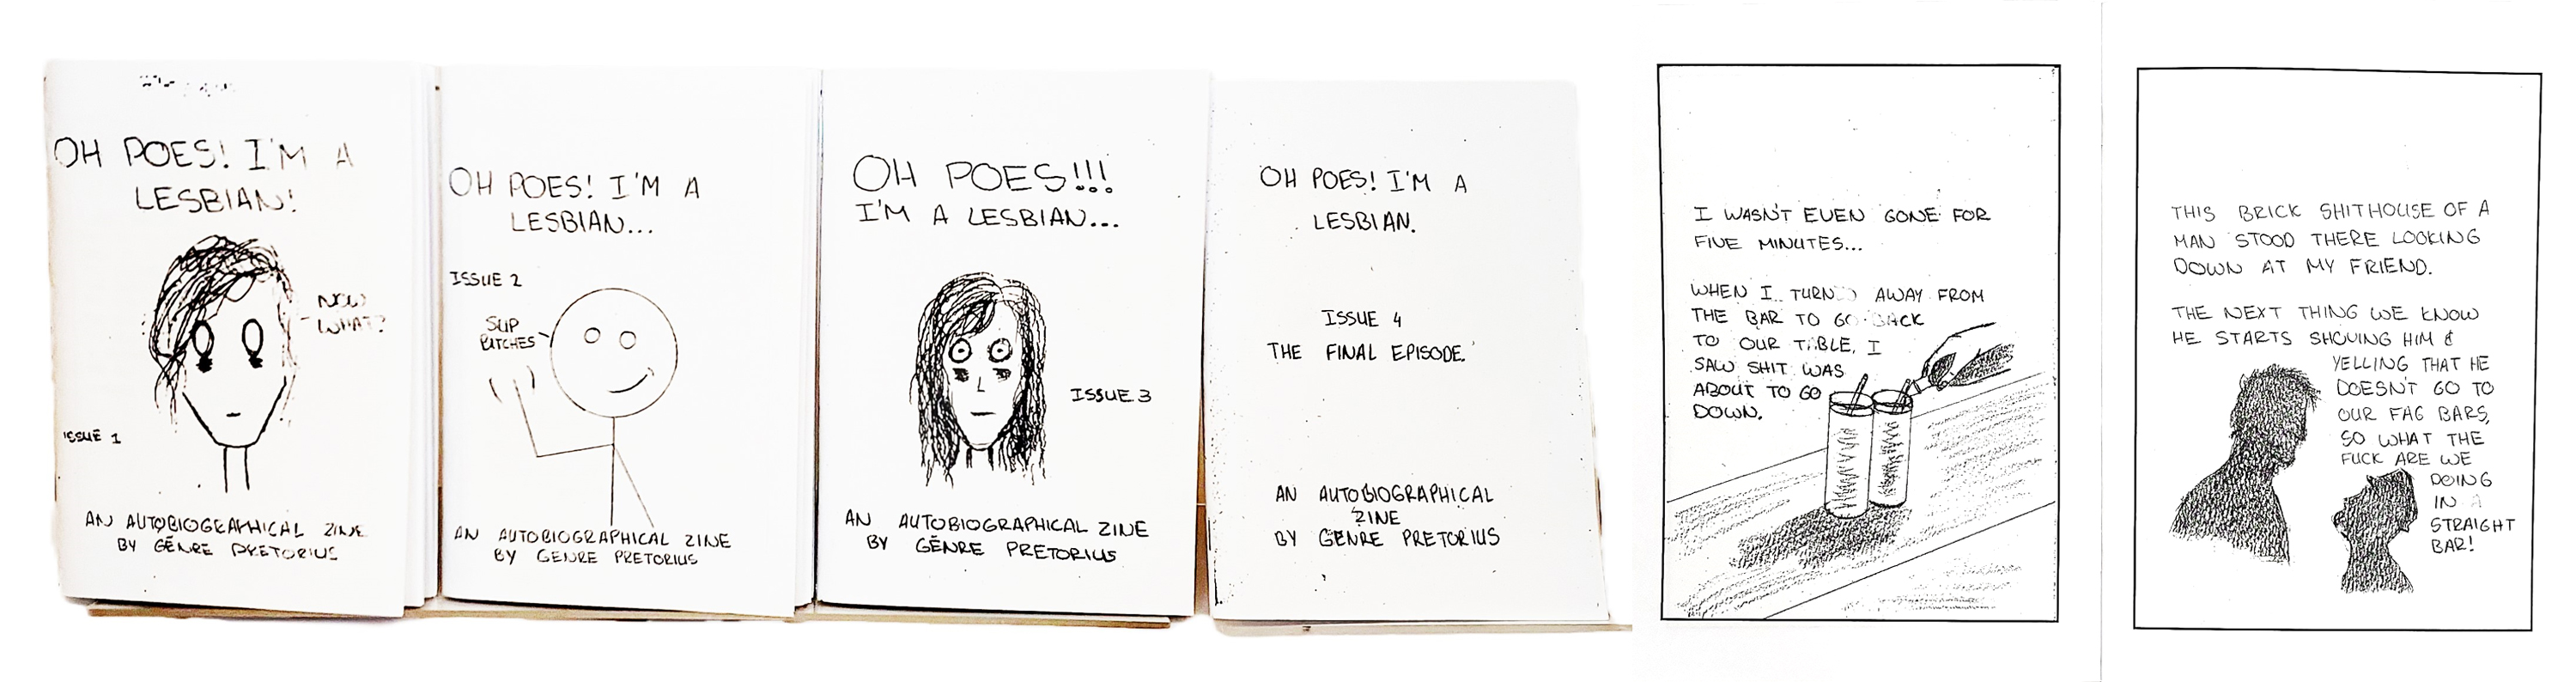 OH POES! I'M A
LESBIAN!
NOW
WHAT?
ISSUE 1
AN AUTOBIOGRAPHICAL ZINE
BY GENRE PRETORIUS
OH POES! I'M A
LESBIAN...
ISSUE 2
SUP
BITCHES
AN AUTOBIOGRAPHICAL ZINE
BY GENRE PRETORIUS
OH POES!!!
I'M A LESBIAN...
ISSUE 3
AN AUTOBIOGRAPHICAL ZINE
BY GENRE PRETORIUS
OH POES! I'M A
LESBIAN.
ISSUE 4
THE FINAL EPISODE.
AN AUTOBIOGRAPHICAL
ZINE
BY GENRE PRETORIUS
I WASN'T EVEN GONE FOR
FIVE MINUTES...
WHEN I TURNED AWAY FROM
THE BAR TO GO BACK
TO OUR TABLE, I
SAW SHIT WAS
ABOUT TO GO
DOWN.
THIS BRICK SHITHOUSE OF A
MAN STOOD THERE LOOKING
DOWN AT MY FRIEND.
THE NEXT THING WE KNOW
HE STARTS SHOVING HIM &
YELLING THAT HE
DOESN'T GO TO
OUR FAG BARS,
SO WHAT THE
FUCK ARE WE
DOING
IN A
STRAIGHT
BAR!